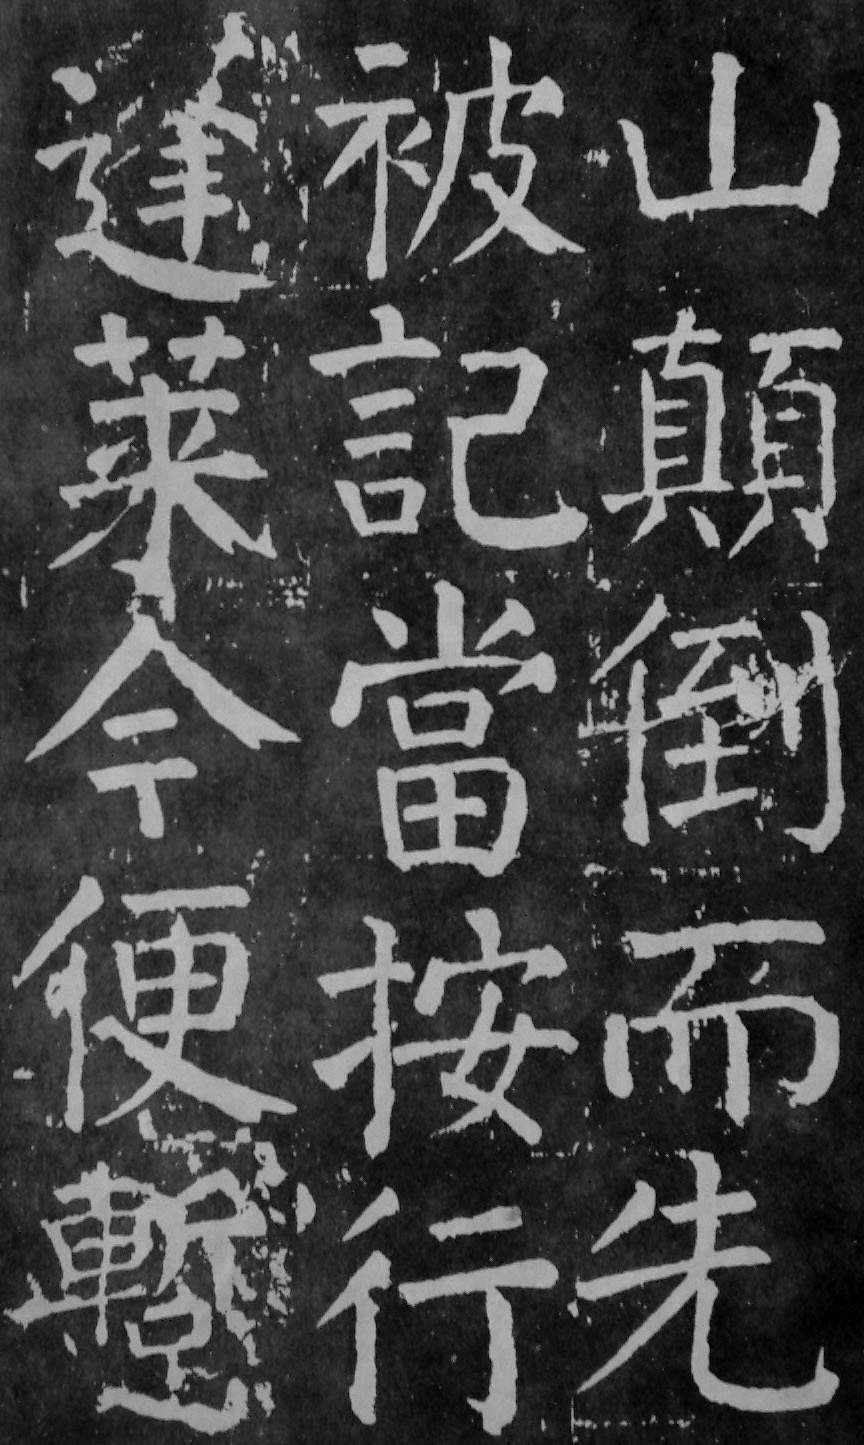 山顛倒而先
被記當按行
逢萊今便蹔